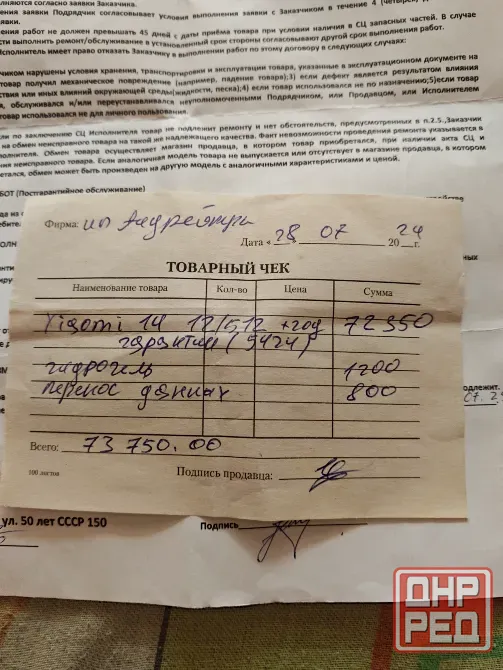 лняются согласно заявки Заказчика.
лнения заявки Подрядчик согласовывает условия выполнения заявки с Заказчиком в течение 4 (четырех)
ения работ не должен превышать 45 дней с даты приёма товара при условии наличия в СЦ запасных частей. В случае
сти выполнить ремонт/обслуживание в установленный срок стороны согласовывают другой срок выполнения работ.
Исполнитель имеет право отказать Заказчику в выполнении работ по этому договору в следующих случаях:
чиком нарушены условия хранения, транспортировки и эксплуатации товара, указанные в эксплуатационном документе на
товар получил механическое повреждение (например, падение товара);3) если дефект является результатом влияния
ствия или иных влияний окружающей среды(жидкости, песка);4) если товар использовался не по назначению;5)если товар
я, обслуживался и/или переустанавливался неуполномоченными Подрядчиком, или Продавцом, или Исполнителем
товар использовался не для личного пользования.
сли по заключению СЦ Исполнителя товар не подлежит ремонту и нет обстоятельств, предусмотренных в п.2.5.,Заказчик
на обмен неисправного товара на такой же надлежащего качества. Факт невозможности проведения ремонта указывается в
полнителя. Обмен товара осуществляет магазин продавца, в котором товар приобретался, при наличии акта СЦ и
ения неисправного товара. Если аналогичная модель товара не выпускается или отсутствует в магазине продавца, в котором
етался, обмен может быть произведен на другую модель с аналогичными характеристиками и ценой.
БОТ (Постгарантийное обслуживание)
Фирма: ип
Дата « 28 » 07 20 24 г.
ТОВАРНЫЙ ЧЕК
Наименование товара Кол-во Цена Сумма
Xiaomi 14 12/512 +год 72350
гарантии (5424)
гидрогель 1200
перенос данных 800
Всего: 73 750.00
100 листов
Подпись продавца:
одлежит.
ул. 50 лет СССР 150
Подпись
ДНР
РЕД